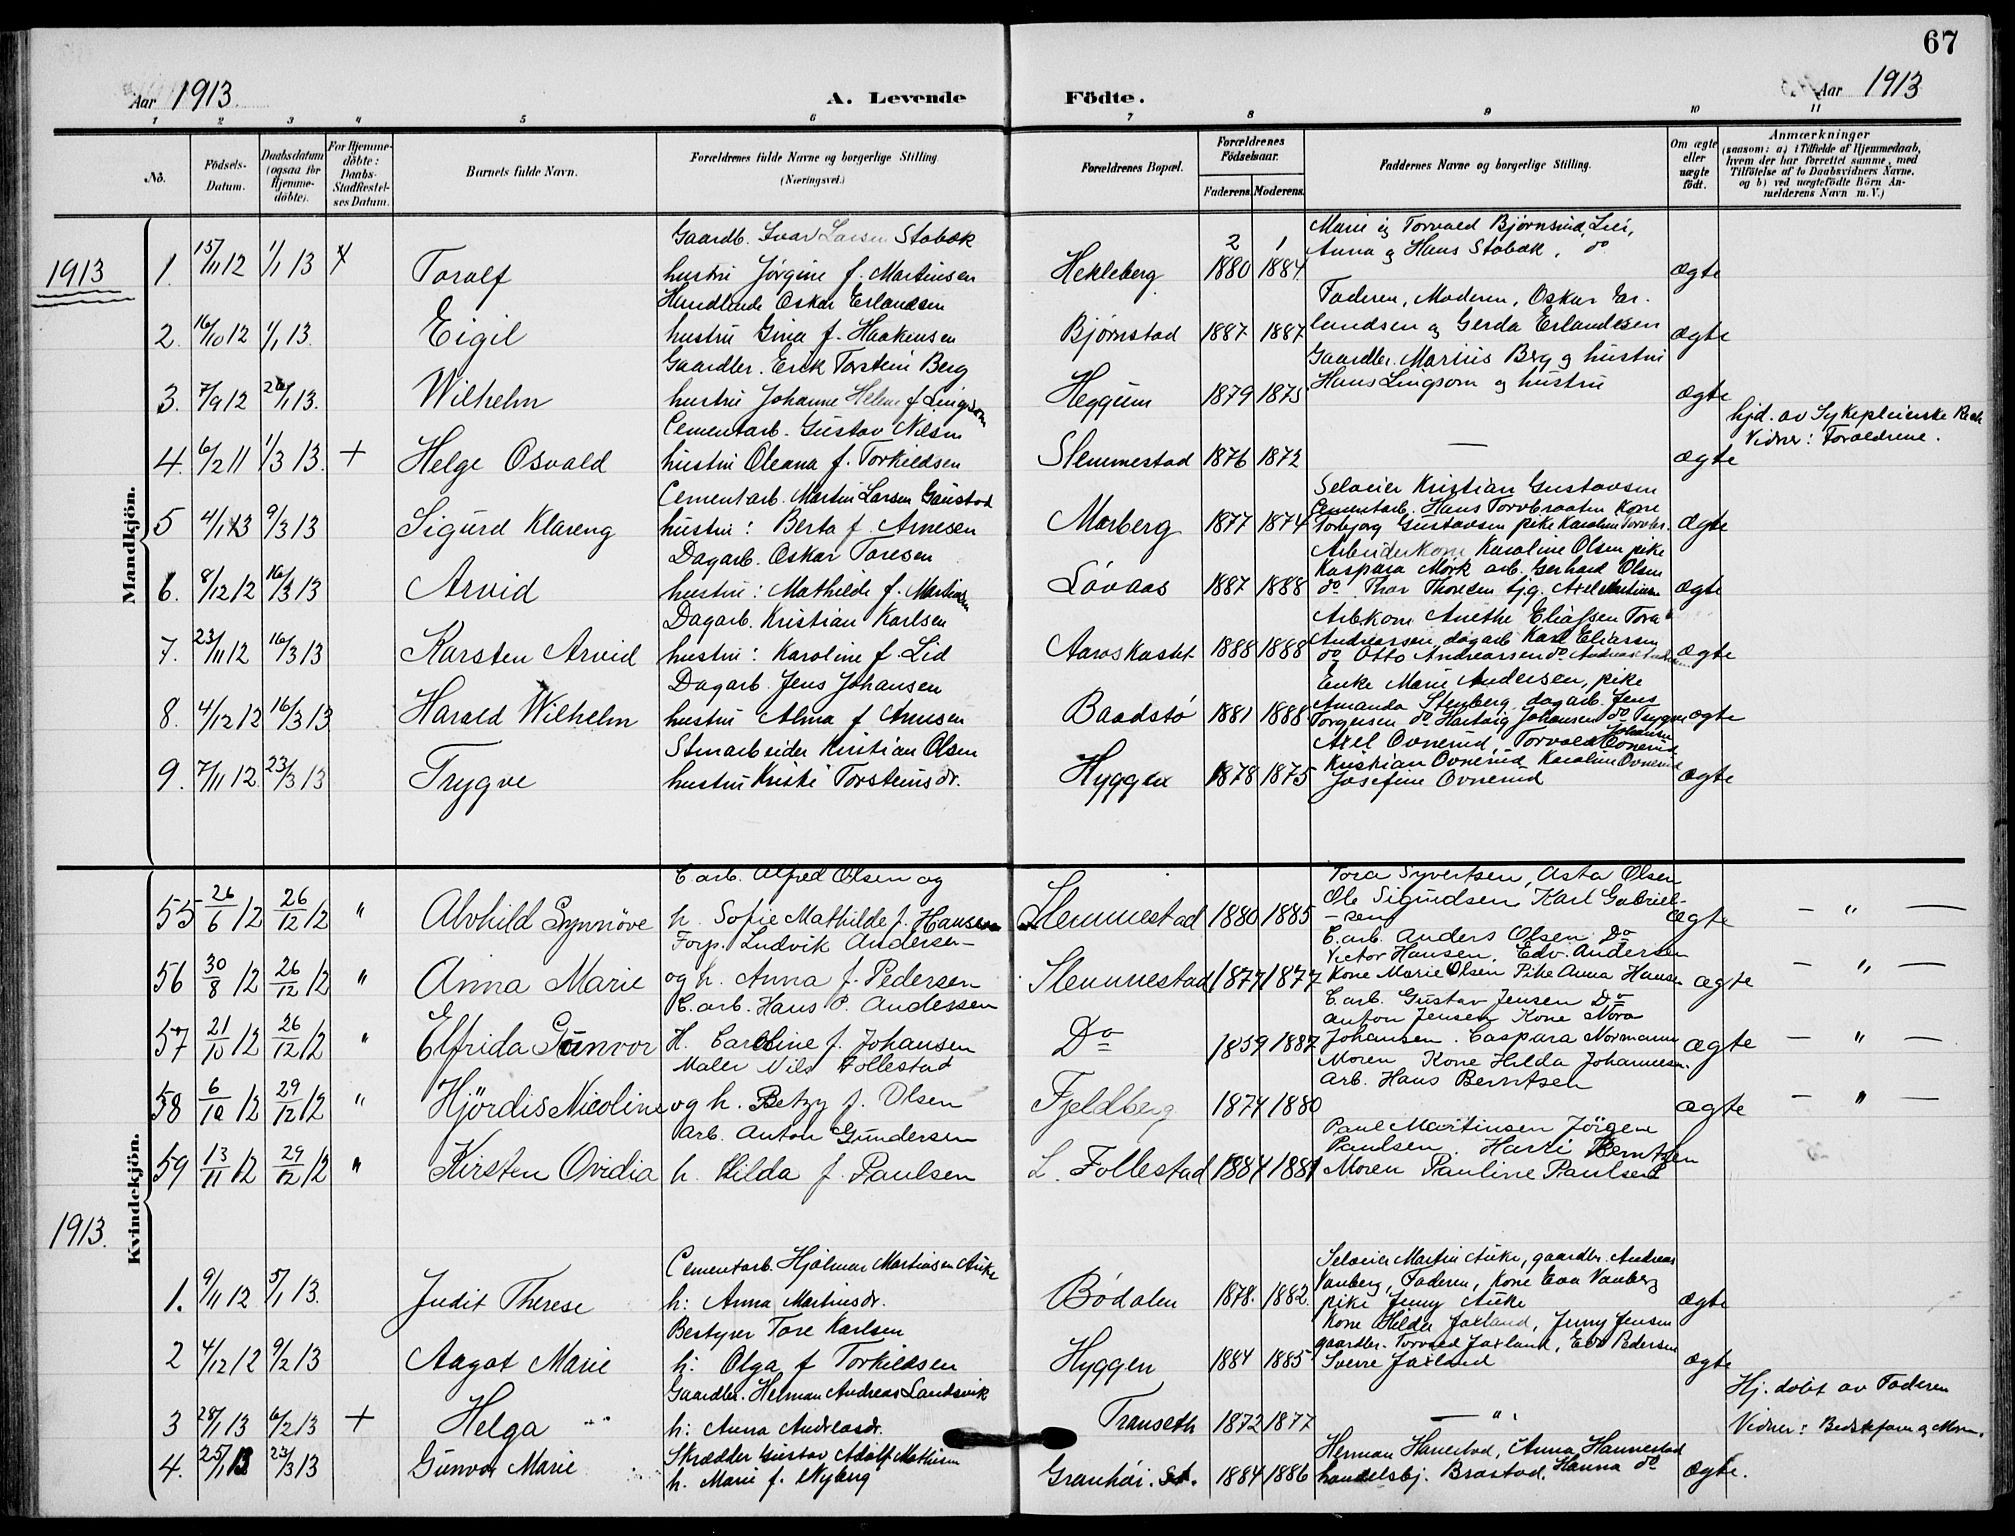 67
Aar 1913
A. Levende Födte.
Aar 1913
1 2 3 4 5 6 7 8 9 10 11
No.
Födsels-Datum.
Daabsdatum (ogsaa for Hjemme-döbte).
For Hjemme-döbte: Daabs-Stadfæstel-ses Datum.
Barnets fulde Navn.
Forældrenes fulde Navne og borgerlige Stilling. (Næringsvei.)
Forældrenes Bopæl.
Forældrenes Födselsaar.
Faderens. Moderens.
Faddernes Navne og borgerlige Stilling.
Om ægte eller uægte födt.
Anmærkninger
(saasom: a) i Tilfælde af Hjemmedaab, hvem der har forrettet samme, med Tilföielse af to Daabsvidners Navne, og b) ved uægtefödte Börn An-melderens Navn m. V.)
Mandkjön.
1913
Gaardb. Ivar Larsen Stobæk
Marie og Torvald Bjørnsrud, Lier,
1. 15/11 12 1/1 13 + Toralf hustru Jørgine f. Martinsen Hekleberg 1880 1884 Anna og Hans Stobæk, do ægte
Handlende Oskar Erlandsen
Faderen, Moderen, Oskar Er-
2. 16/10 12 1/1 13. Eigil hustru Gina f. Haakensen Bjørnstad 1887 1887 landsen og Gerda Erlandsen ægte
Gaardbr. Erik Torstein Berg
Gaardbr. Marius Berg og hustru
3. 7/9 12 26/1 13. Wilhelm hustru Johanne Helene f. Lingsom Heggum 1879 1875 Hans Lingsom og hustru ægte
Cementarb. Gustav Nilsen
hjd. av Sykepleierske
Vidner: Forældrene.
4. 6/2 11 1/3 13. + Helge Osvald hustru Oleana f. Torkildsen Slemmestad 1876 1872 — ægte
Cementarb. Martin Larsen Gaustad
Selveier Kristian Gustavsen
Cementarb. Hans Torvbraaten Kone
5 4/1 13 9/3 13 Sigurd Klareng hustru: Berta f. Arnesen Morberg 1877 1874 Torbjørg Gustavsen pike Karoline Torvbr. ægte
Dagarb. Oskar Toresen
Arbeiderkone Karoline Olsen pike
Kaspara Mørk arb. Gerhard Olsen
6. 8/12 12 16/3 13 Arvid hustru: Mathilde f. Martinsen Løvaas 1887 1888 do Thor Thoresen tjg. Axel Martinsen ægte
Dagarb. Kristian Karlsen
Arbkone Anethe Eliassen Tora
Andreassen dagarb. Karl Eliassen
7. 23/11 12 16/3 13 Karsten Arvid hustru: Karoline f. Lid Aaroskastet 1888 1888 do Otto Andreassen do ægte
Dagarb. Jens Johansen
Enke Marie Andersen, pike
Amanda Stenberg, dagarb. Jens
8. 4/12 12 16/3 13 Harald Wilhelm hustru Alma f. Arnesen Baadstø 1881 1888 Torgersen do Hartvig Johansen do Trygve Johansen ægte
Stenarbeider Kristian Olsen
Axel Ovnerud, Torvald Ovnerud
Kristian Ovnerud Karoline Ovnerud
9. 7/11 12. 23/3 13 Trygve hustru Kristi Torsteinsdr. Hyggen 1878 1875 Josefine Ovnerud ægte
Kvindekjön.
C. arb. Alfred Olsen og
Tora Syvertsen, Asta Olsen
Ole Sigurdsen, Karl Gabriel-
55 26/6 12 26/12 12 " Alvhild Synnöve h. Sofie Mathilde f. Hansen Slemmestad 1880 1885 -sen ægte — " —
Forp. Ludvik Andersen
C. arb. Anders Olsen Do
Victor Hansen, Edv. Andersen
56 30/8 12 26/12 12 " Anna Marie og h. Anna f. Pedersen Slemmestad 1877 1877 Kone Marie Olsen Pike Anna Hansen ægte — " —
C. arb. Hans P. Andersen
C. arb. Gustav Jensen Do
Anton Jensen Kone Nora
57 21/10 12 26/12 12 " Elfrida Gunvor H. Caroline f. Johansen Do 1859 1887 Johansen. Caspara Normann ægte — " —
Maler Nils Follestad
Moren Kone Hilda Johannesen.
Arb. Hans Berntsen
58 6/10 12 29/12 12 " Hjördis Nicoline og h. Betzy f. Olsen Fjeldberg 1874 1880 ægte — " —
Arb. Anton Gundersen
Paul Martinsen Jörgen
Paulsen. Harri Berntzen
59 13/11 12 29/12 12 " Kirsten Ovidia h. Hilda f. Paulsen L. Follestad 1884 1881 Moren Pauline Paulsen
1913.
Cementarb. Hjalmar Martinsen Auke
Selveier Martin Auke, gaardbr. Andreas
Vanberg, Faderen, Kone Eva Vanberg
1. 9/11 12 5/1 13. Judit Therese h: Anna Martinsdr. Bödalen 1878. 1882. pike Jenny Auke ægte
Bestyrer Tore Karlsen
Kone Hilda Joxland, Jenny Jensen
gaardbr. Torvald Joxland, Edv. Pedersen
2 4/12 12 9/2 13 Aagot Marie h: Olga f Torkildsen Hyggen 1884 1885 Sverre Joxland ægte
Gaardbr. Herman Andreas Sandsvik
Hj. döbt av Faderen
3 28/1 13 6/2 13 + Helga h: Anna Andreasdr. Transeth 1872 1877 — " Vidner: Bedstefaren og Moren.
Skrædder Gustav Adolf Mathisen
Herman Hannestad, Anna Hannestad
4. 25/1 13 23/3 13 Gunvor Marie h. Marie f. Nyberg Granhöi. St. 1884 1886 handelsbj. Brastad, Hanna do ægte.